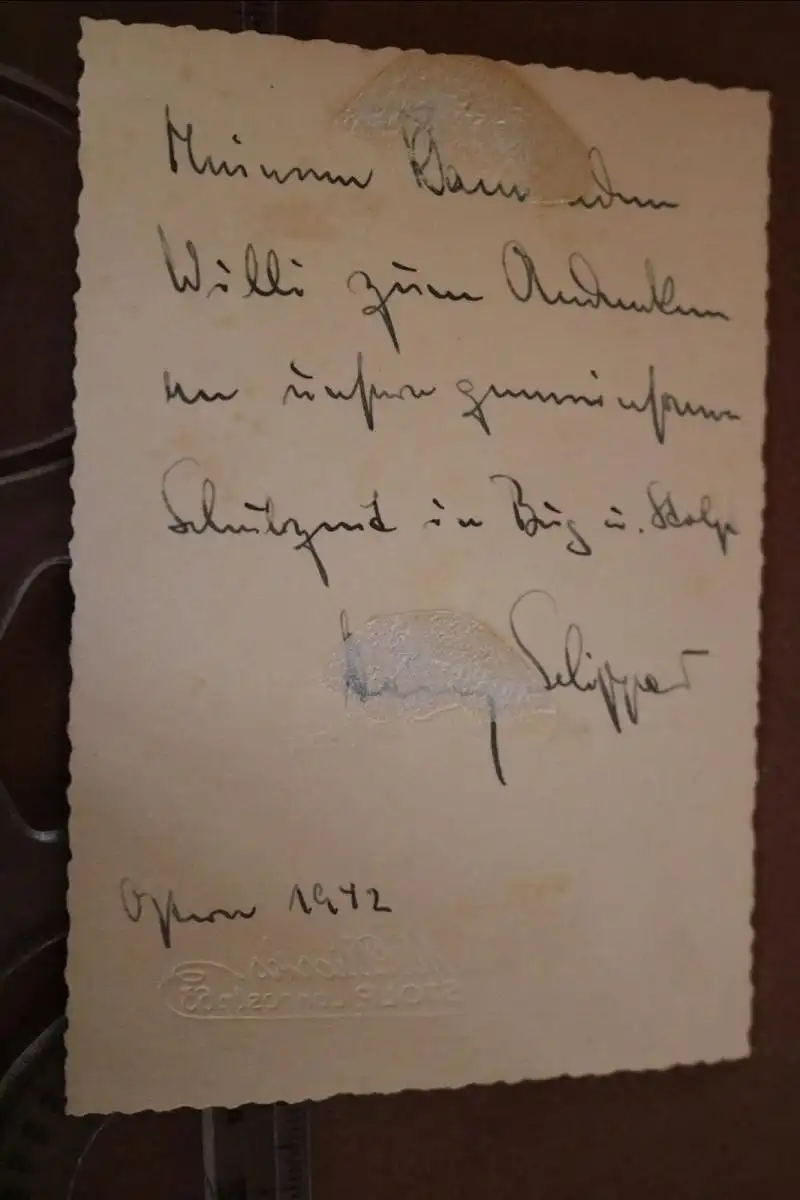 Meinem Kameraden
Willi zum Andenken
an unsere gemeinsame
Schulzeit in Bug u. Stolp
Schipper
Ostern 1942
STOLP